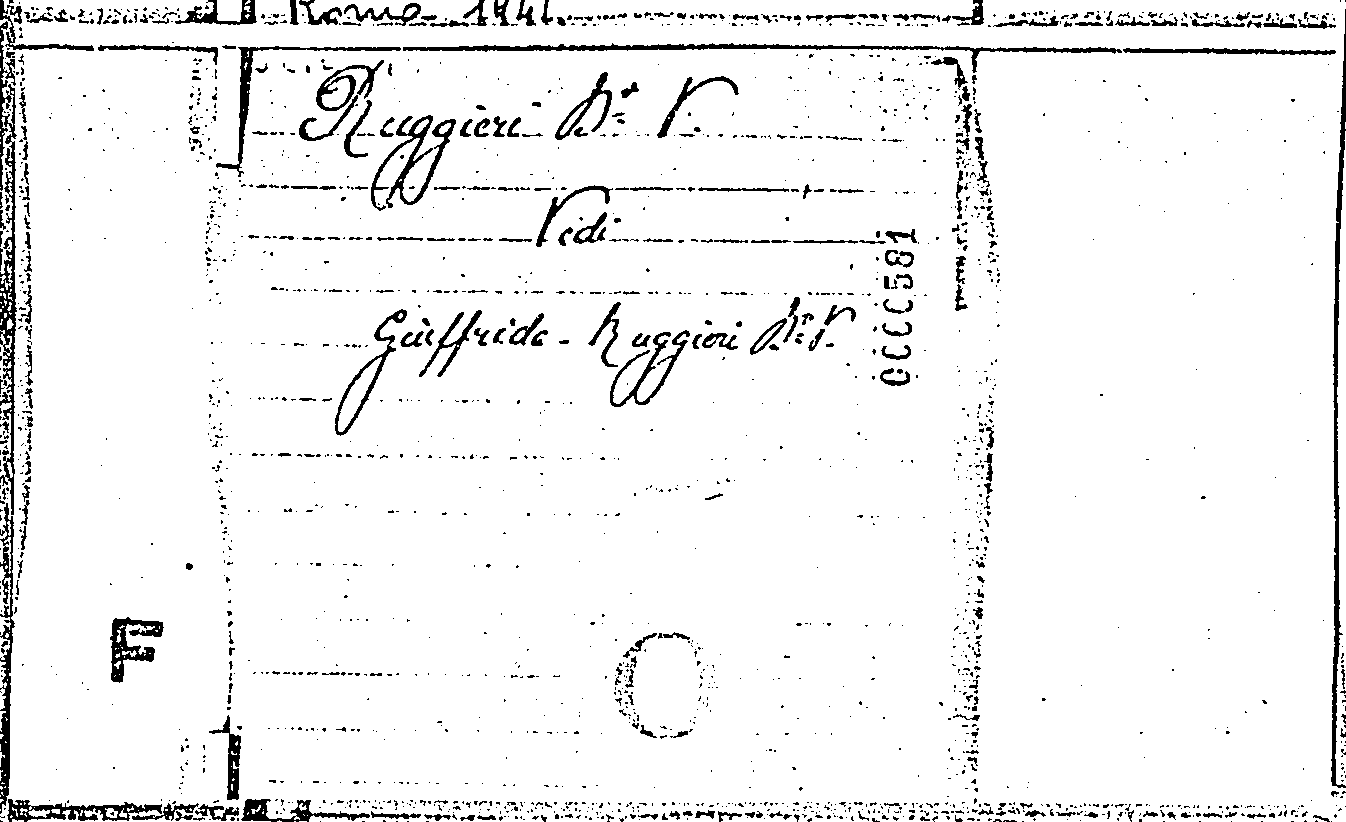 Roma 1941.
Ruggieri Dr. V.
Vedi
Giuffrida-Ruggieri Dr. V.
0000581
F